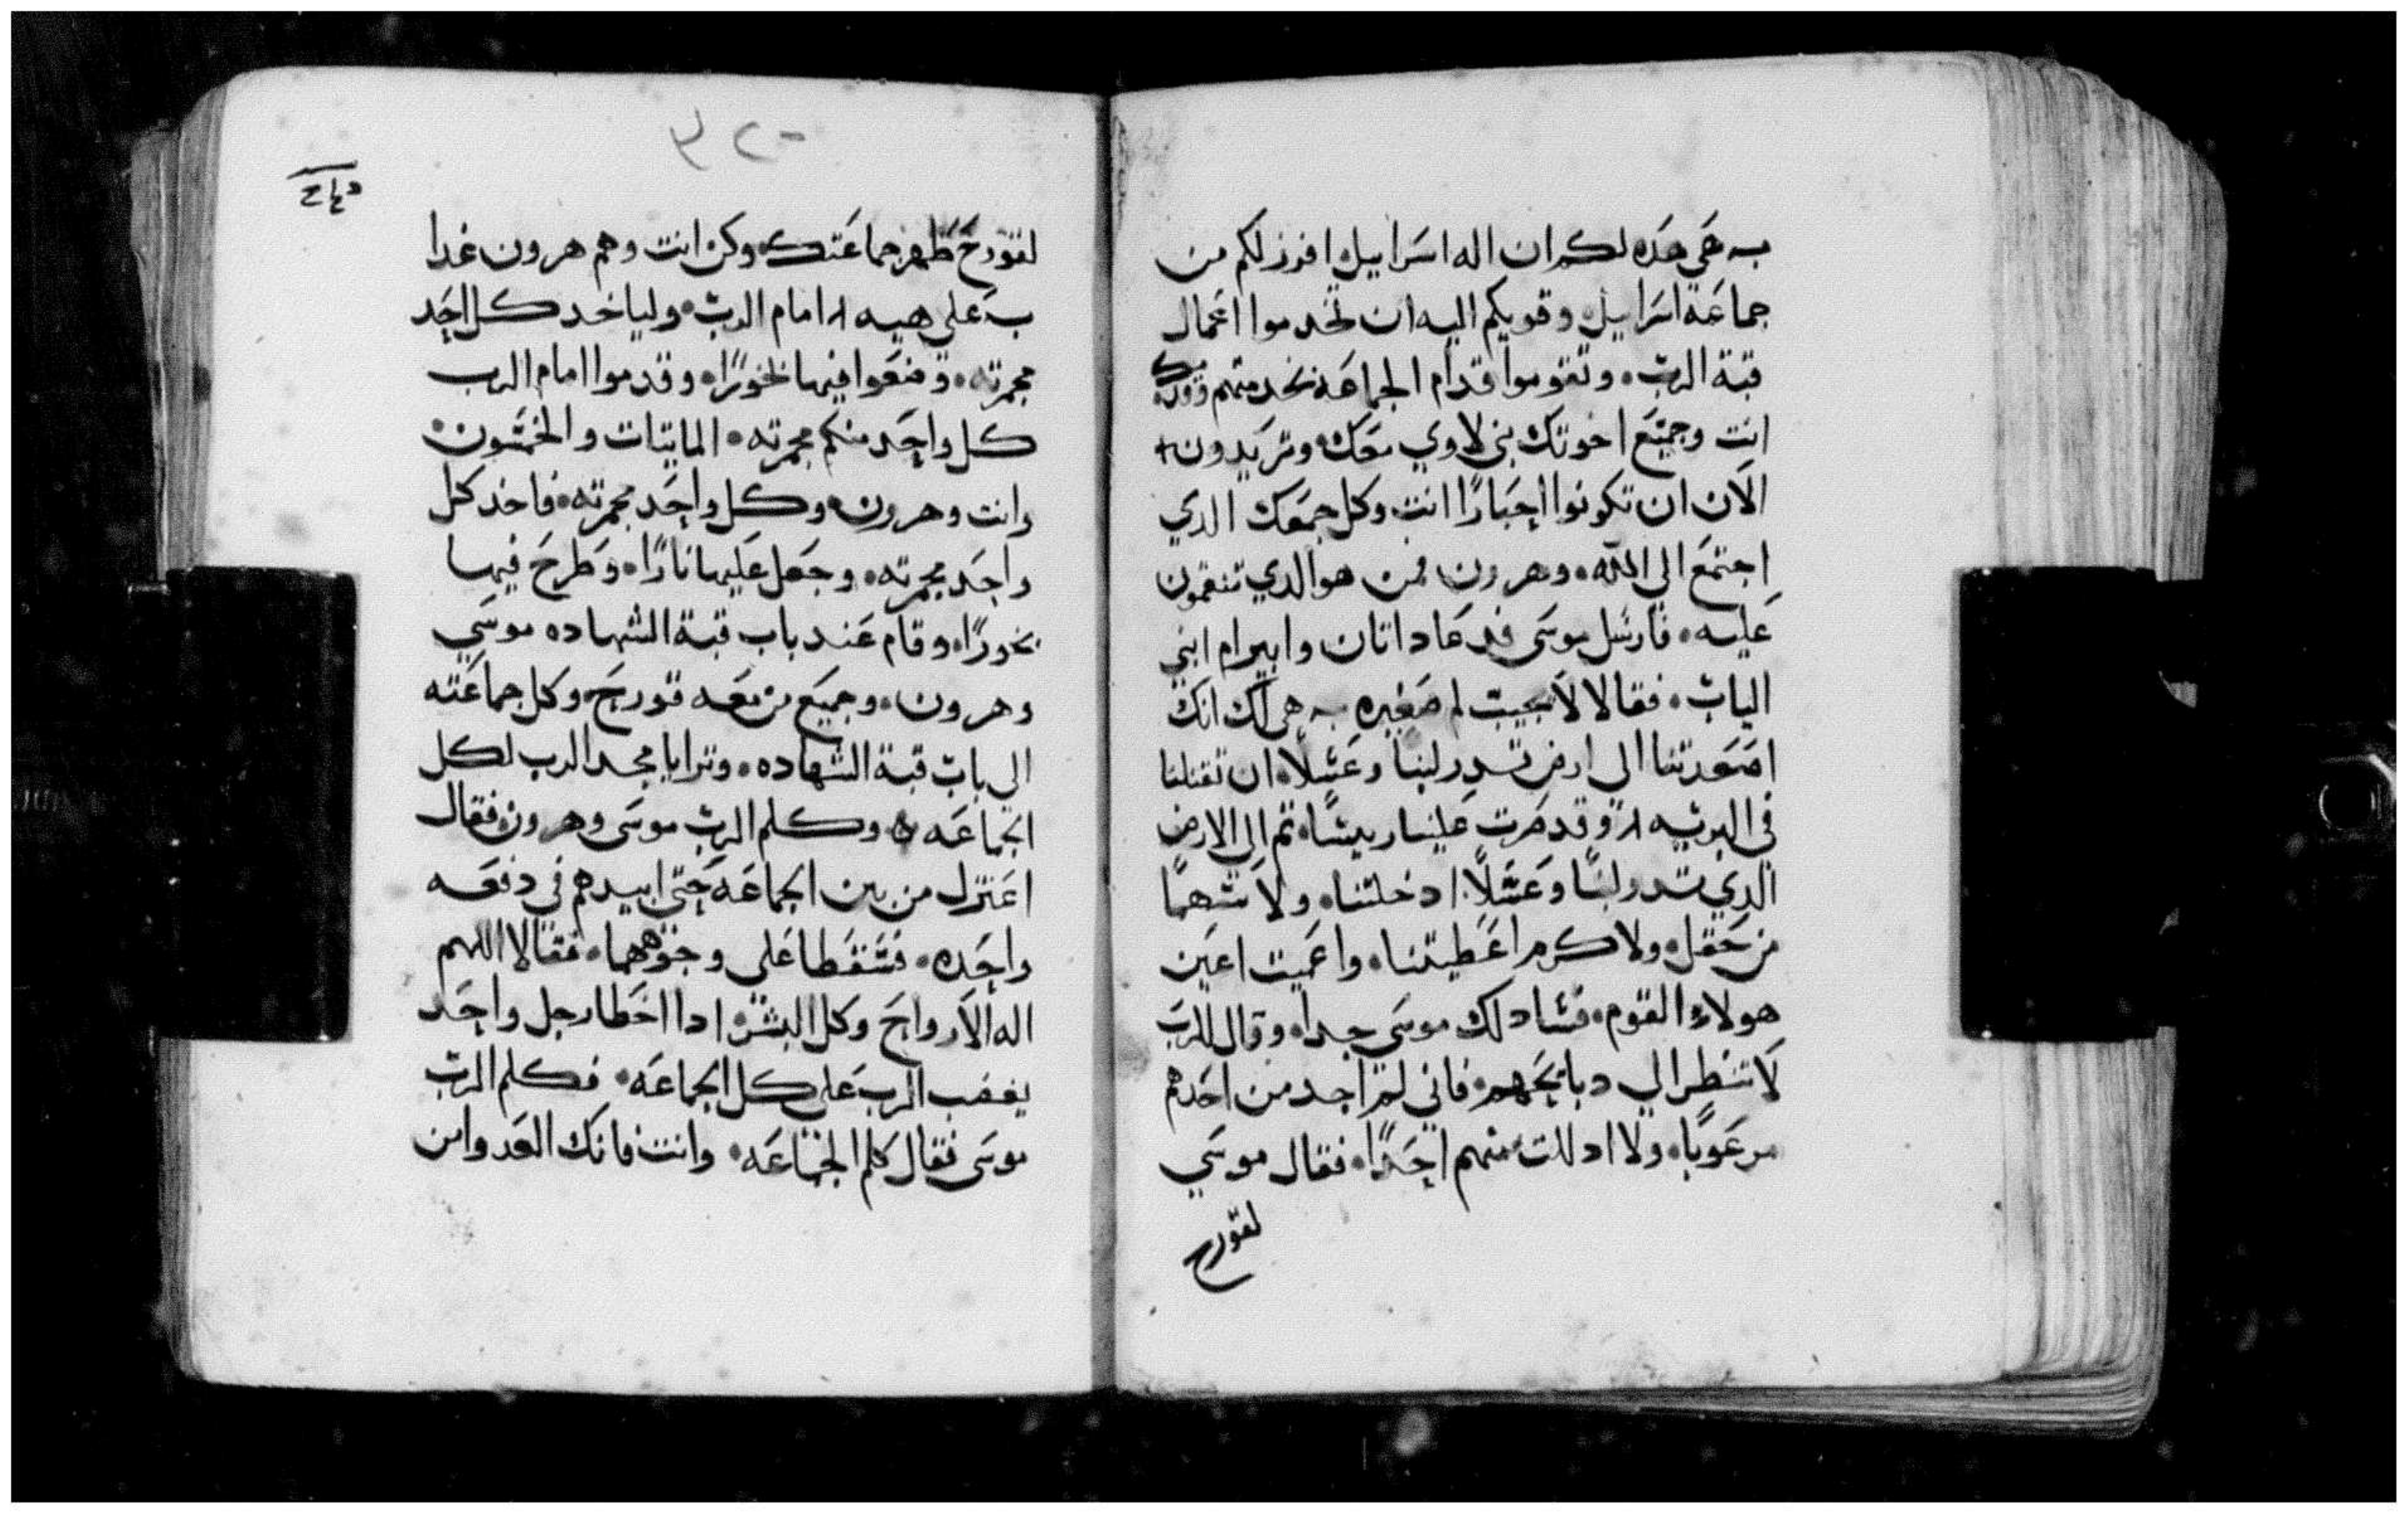 به هي هده لكم ان اله اسراييل افرز لكم من
جماعة اسراييل وقويكم اليه ان تخدموا اعمال
قبة الرب • وتقوموا قدام الجماعة نخدمتهم
انت وجميع اخوتك بني لاوي معك وتريدون
الان ان تكونوا احبارا انت وكل جمعك الدي
اجتمع الى الله • وهرون فمن هو الدي تنقمون
عليه • فارسل موسى فدعا داتان وابيرام ابني
الياب • فقالا لا نجيب لم صغيره به هي لك انك
اصعدتنا الى ارض تدر لبنا وعسلا ان تقتلنا
في البريه • وقد صرت علينا رييسا • تم الي الارض
الدي تدر لبنا وعسلا ادخلتنا • ولا سهما
من حقل ولا كرم اعطيتنا • واعميت اعين
هولاء القوم • فسا دلك موسى جدا • وقال للرب
لا تنظر الي دبايحهم • فاني لم اجد من احدهم
مرعوبا • ولا ادللت منهم احدا • فقال موسي
لقورح
٣٢٠
لقورح طهر جماعتك وكن انت وهم هرون غدا
به على هيه امام الرب • ولياخد كل احد
مجمرته • وضعوا فيها بخورا • وقدموا امام الرب
كل واحد منكم مجمرته • الماتيات والخمسون •
وانت وهرون • وكل واحد مجمرته • فاخد كل
واحد مجمرته • وجعل عليها نارا • وطرح فيها
بخورا • وقام عند باب قبة الشهاده موسي
وهرون • وجميع من معه قورح • وكل جماعته
الى باب قبة الشهاده • وترايا مجد الرب لكل
الجماعه ه وكلم الرب موسى وهرون فقال
اعتزل من بين الجماعه حتى ابيدهم في دفعه
واحده • فسقطا على وجوههما • فقالا اللهم
اله الارواح وكل البشر • ادا اخطا رجل واحد
يغضب الرب على كل الجماعه • فكلم الرب
موسى فقال كلم الجماعه • وانت فانك العد وابن